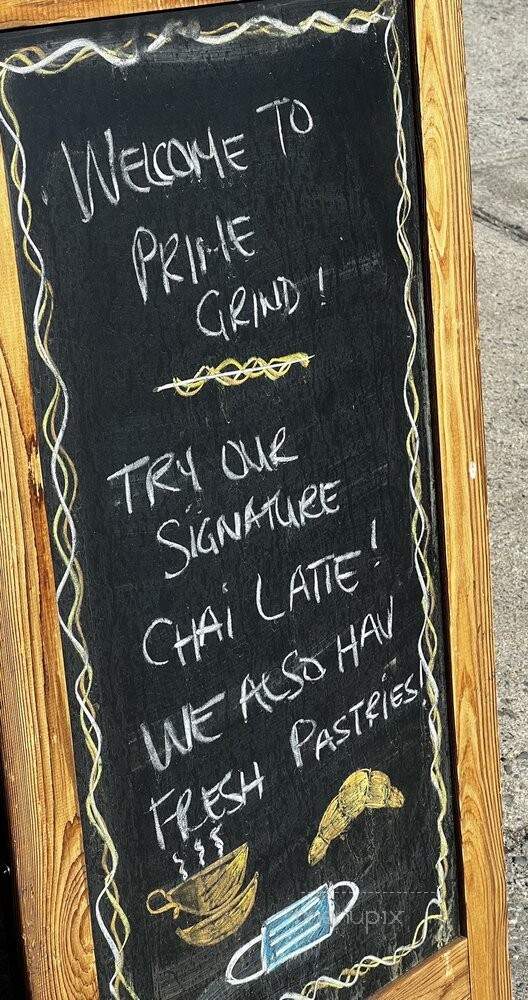 WELCOME TO
PRIME
GRIND!
TRY OUR
SIGNATURE
CHAi LATTE!
WE ALSO HAV
FRESH PASTRiES!
menupix